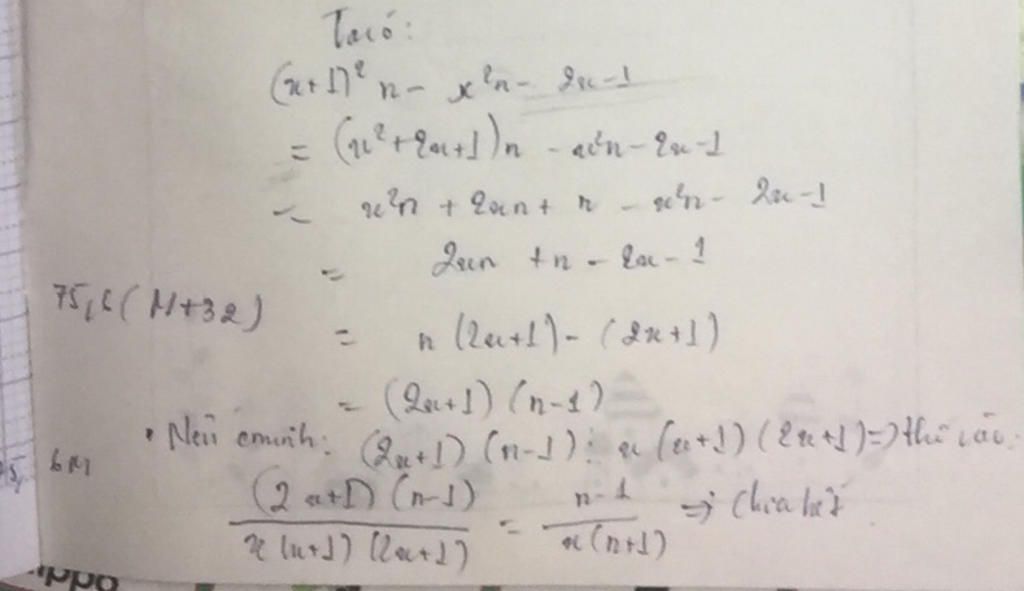 Ta có:
(x+1)² n - x²n - 2x - 1
= (x²+2x+1)n - x²n - 2x - 1
= x²n + 2xn + n - x²n - 2x - 1
= 2xn + n - 2x - 1
75,6(M+32)
= n(2x+1) - (2x+1)
= (2x+1)(n-1)
• Nếu cminh: (2x+1)(n-1) ⋮ x(x+1)(2x+1) => thì
(2x+1)(n-1) / x(x+1)(2x+1) = n-1 / x(x+1) => chia hết